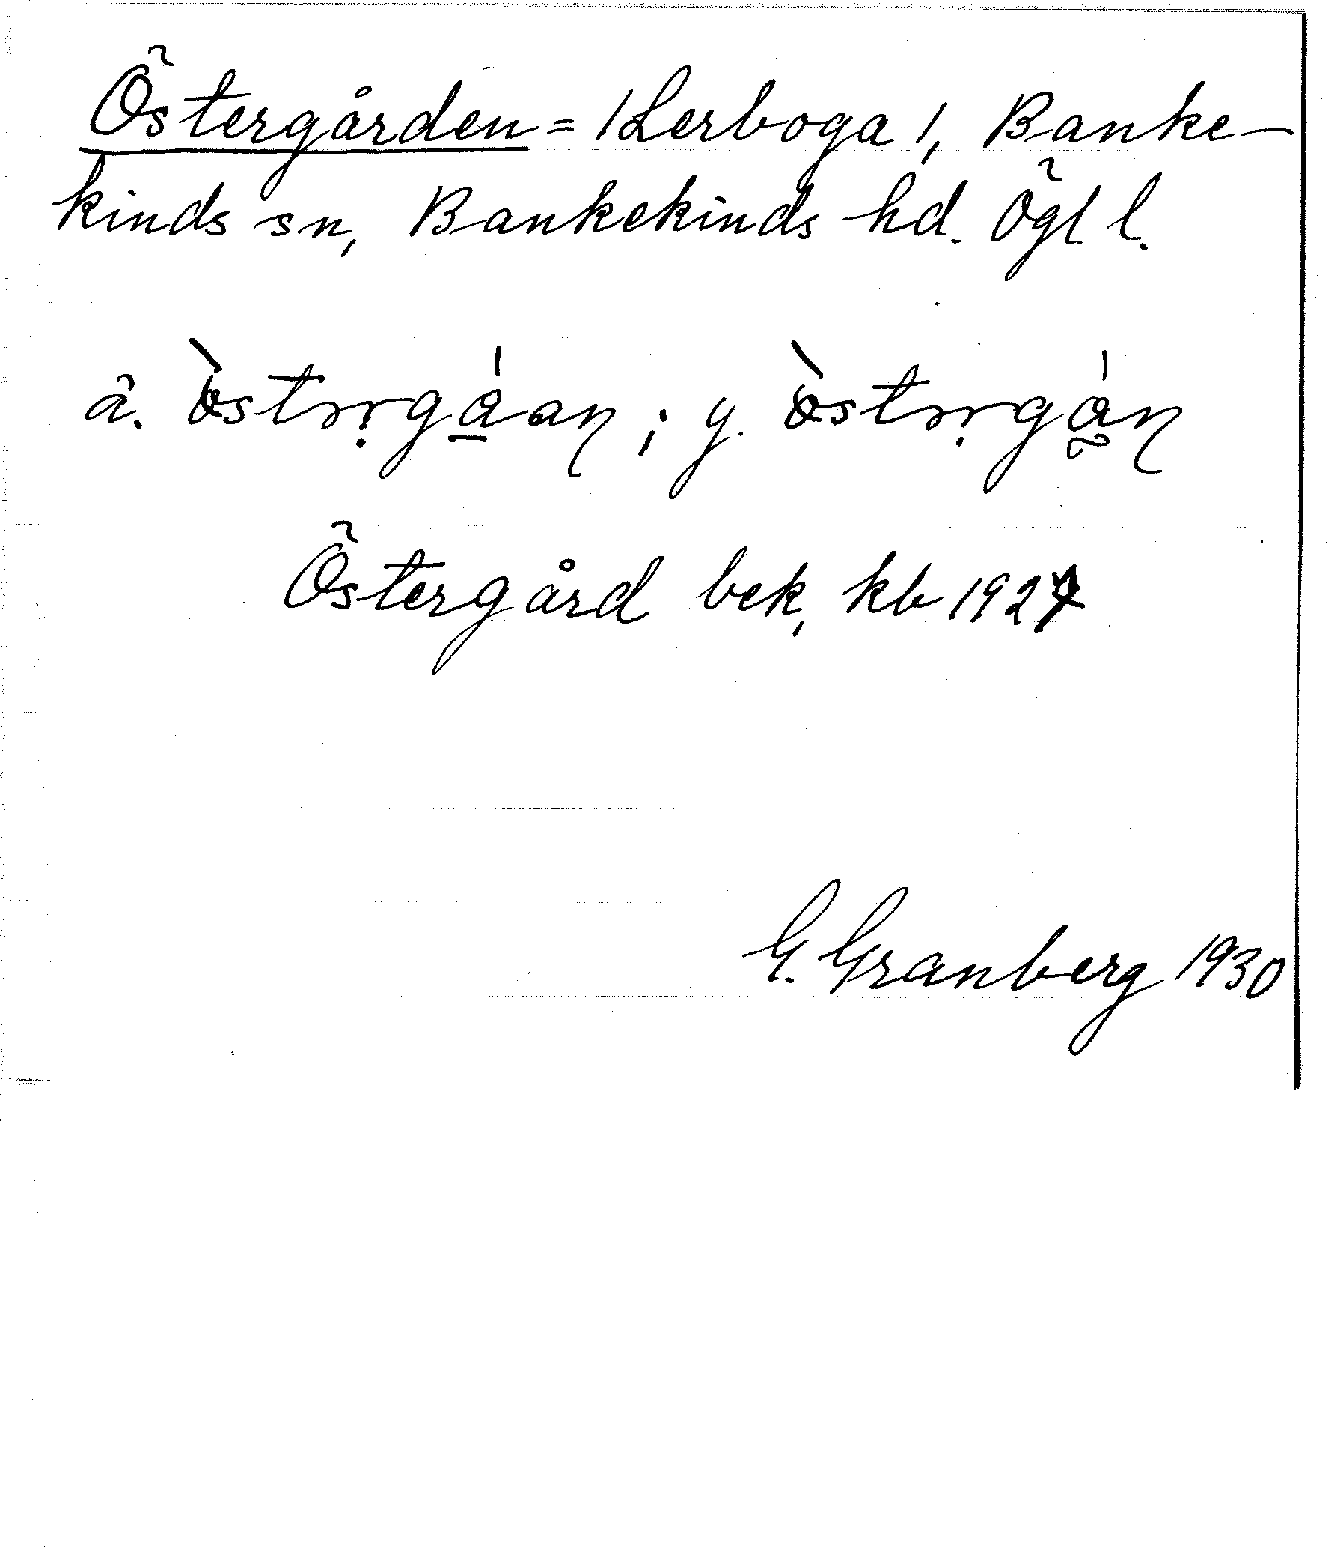 Östergården = /Lerboga/, Banke-
kinds sn, Bankekinds hd. Ögl l.
ä. òstrrgáan ; y. òstrrgán
Östergård bek, kb 1927
G. Granberg 1930